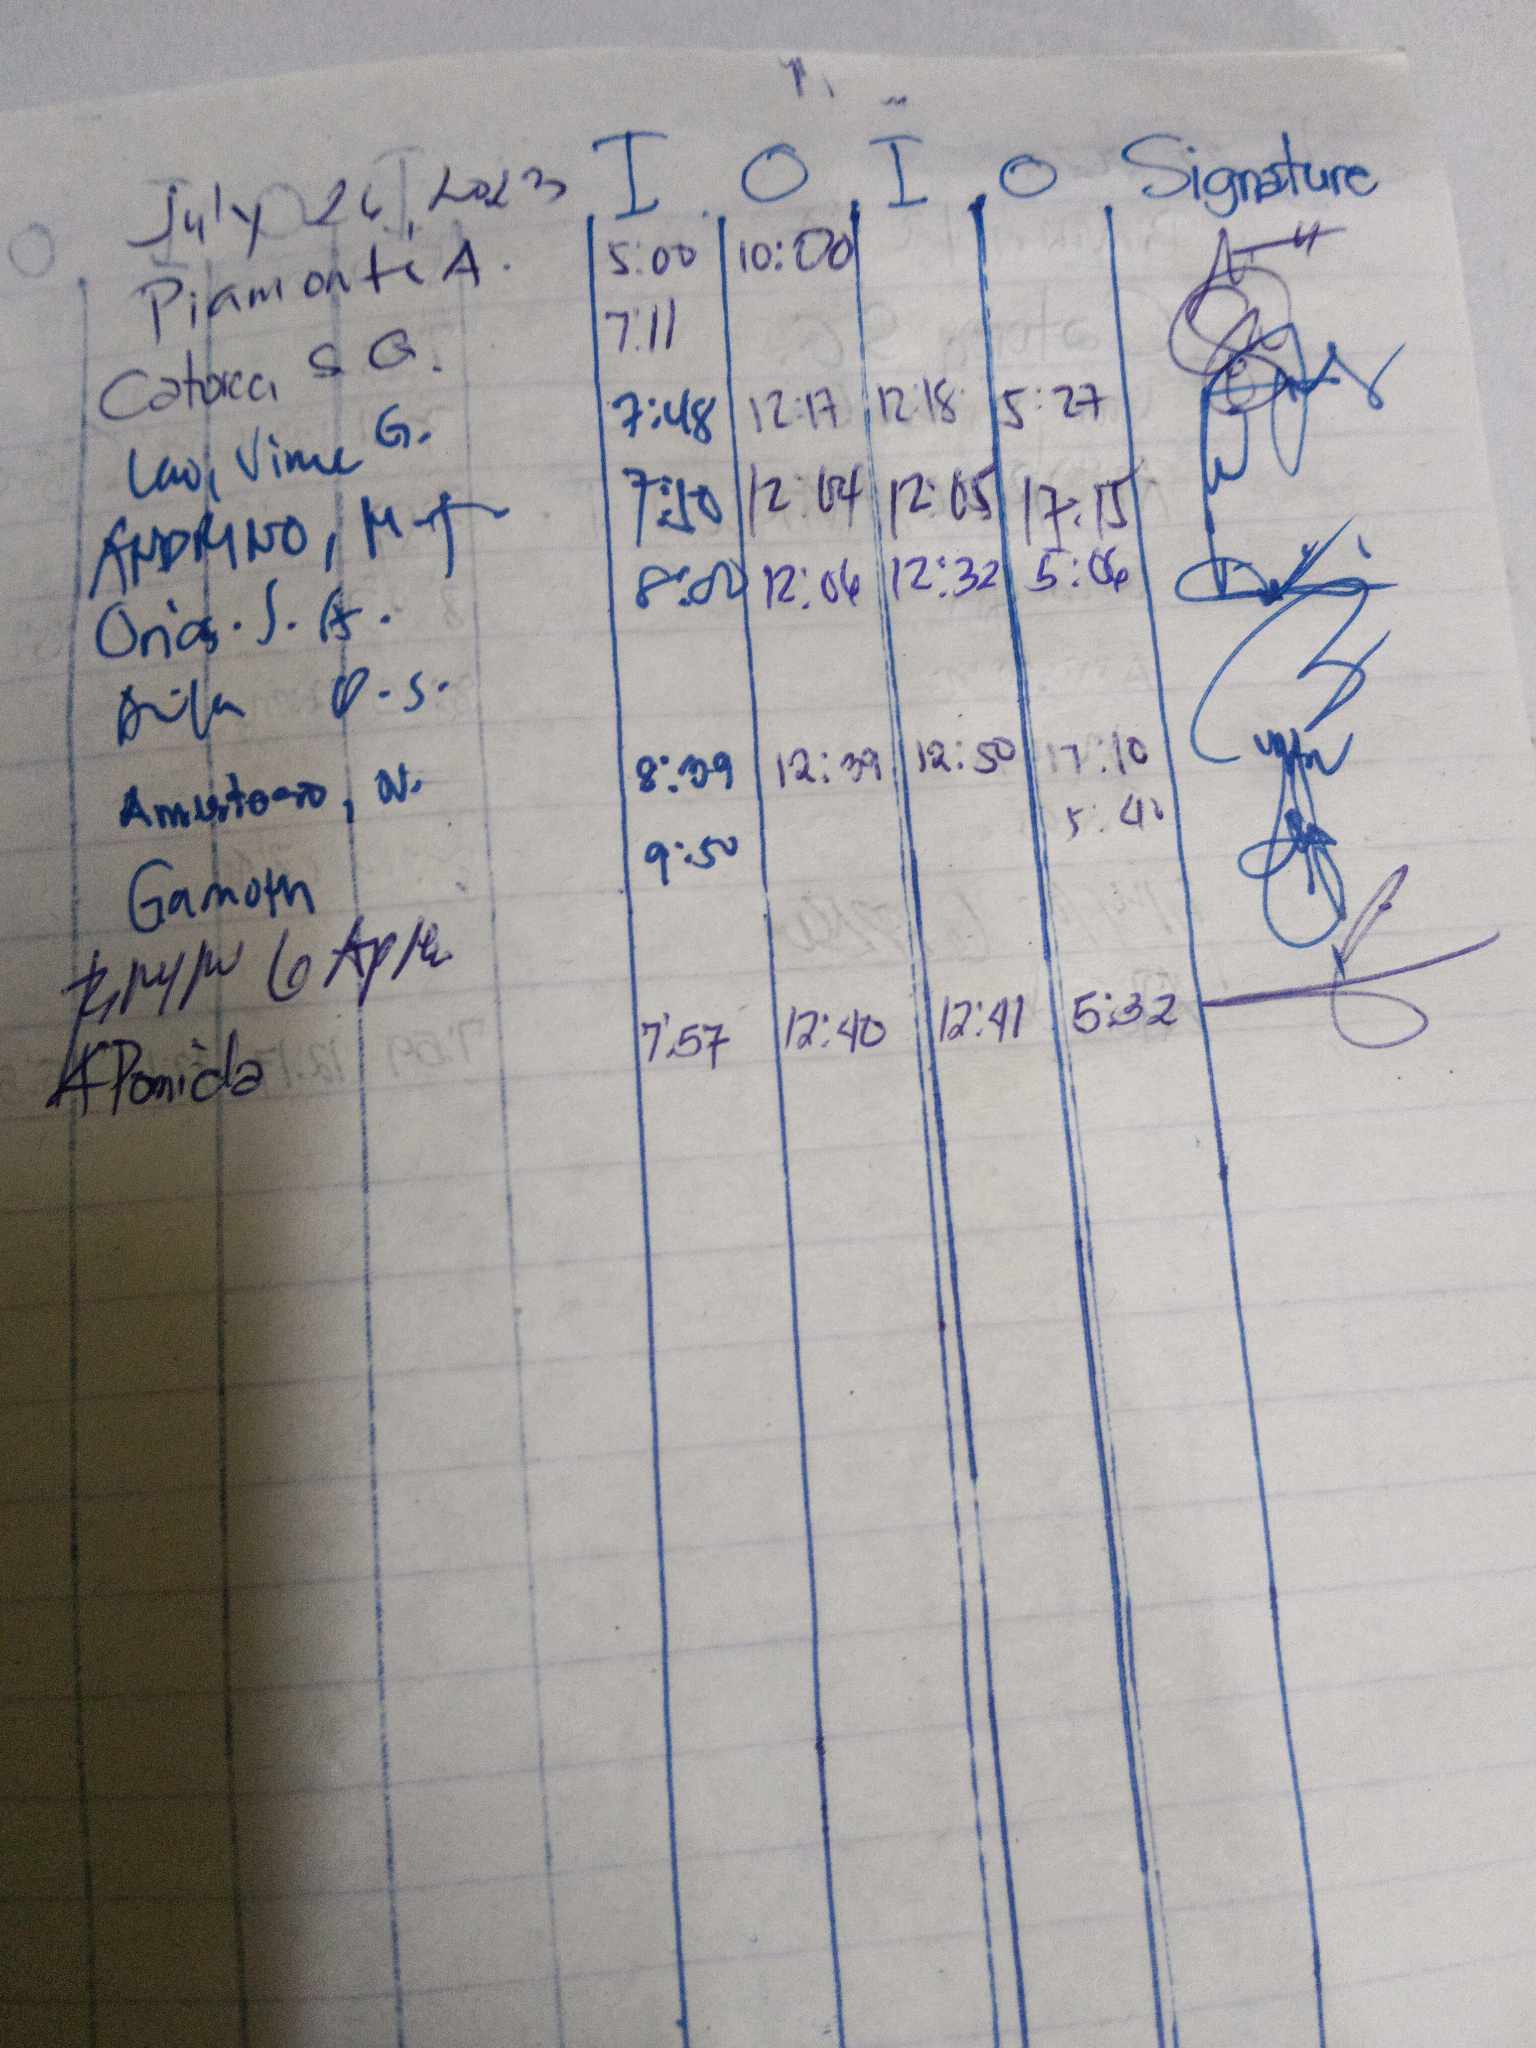 July 26, 2023 I O I O Signature
Piamonte A. 5:00 10:00
Catorce, S G. 7:11
Lao, Vime G. 7:48 12:17 12:18 5:27
ANDRINO, M 7:50 12:04 12:05 17:15
Orias. J. A. 8:02 12:06 12:32 5:06
O.S.
N. 8:39 12:39 12:50 17:10
Gamoth 9:50 5:40
APomida 7:57 12:40 12:41 5:32